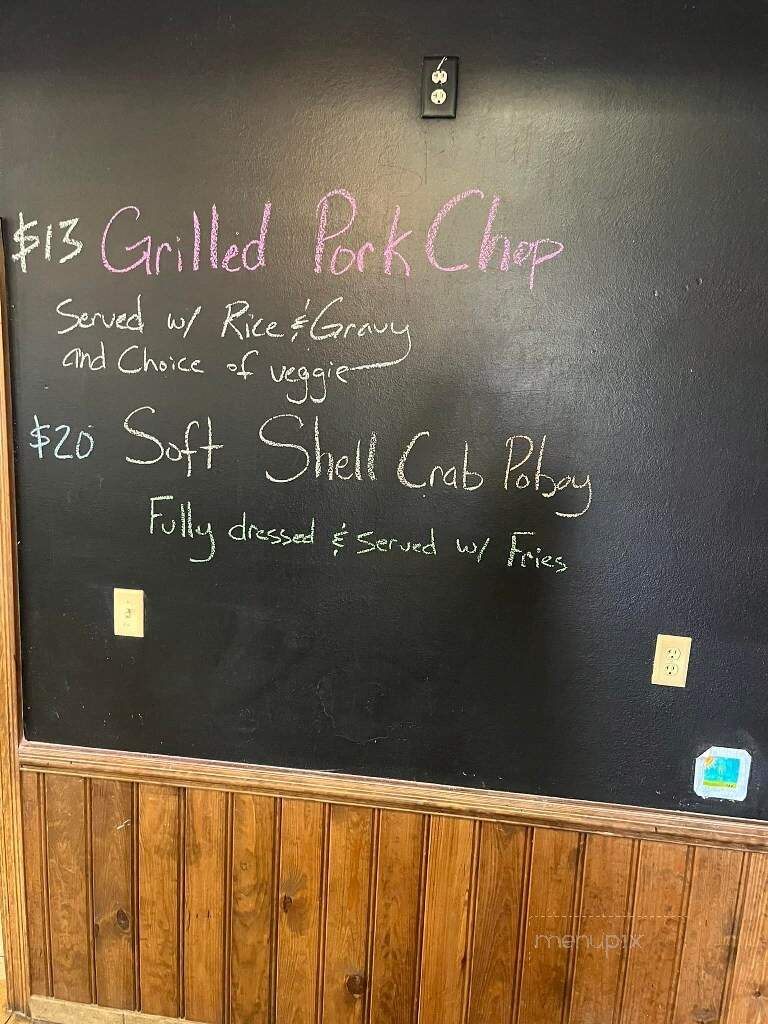 $13 Grilled Pork Chop
Served w/ Rice & Gravy
and Choice of veggie
$20 Soft Shell Crab Poboy
Fully dressed & Served w/ Fries
menupix